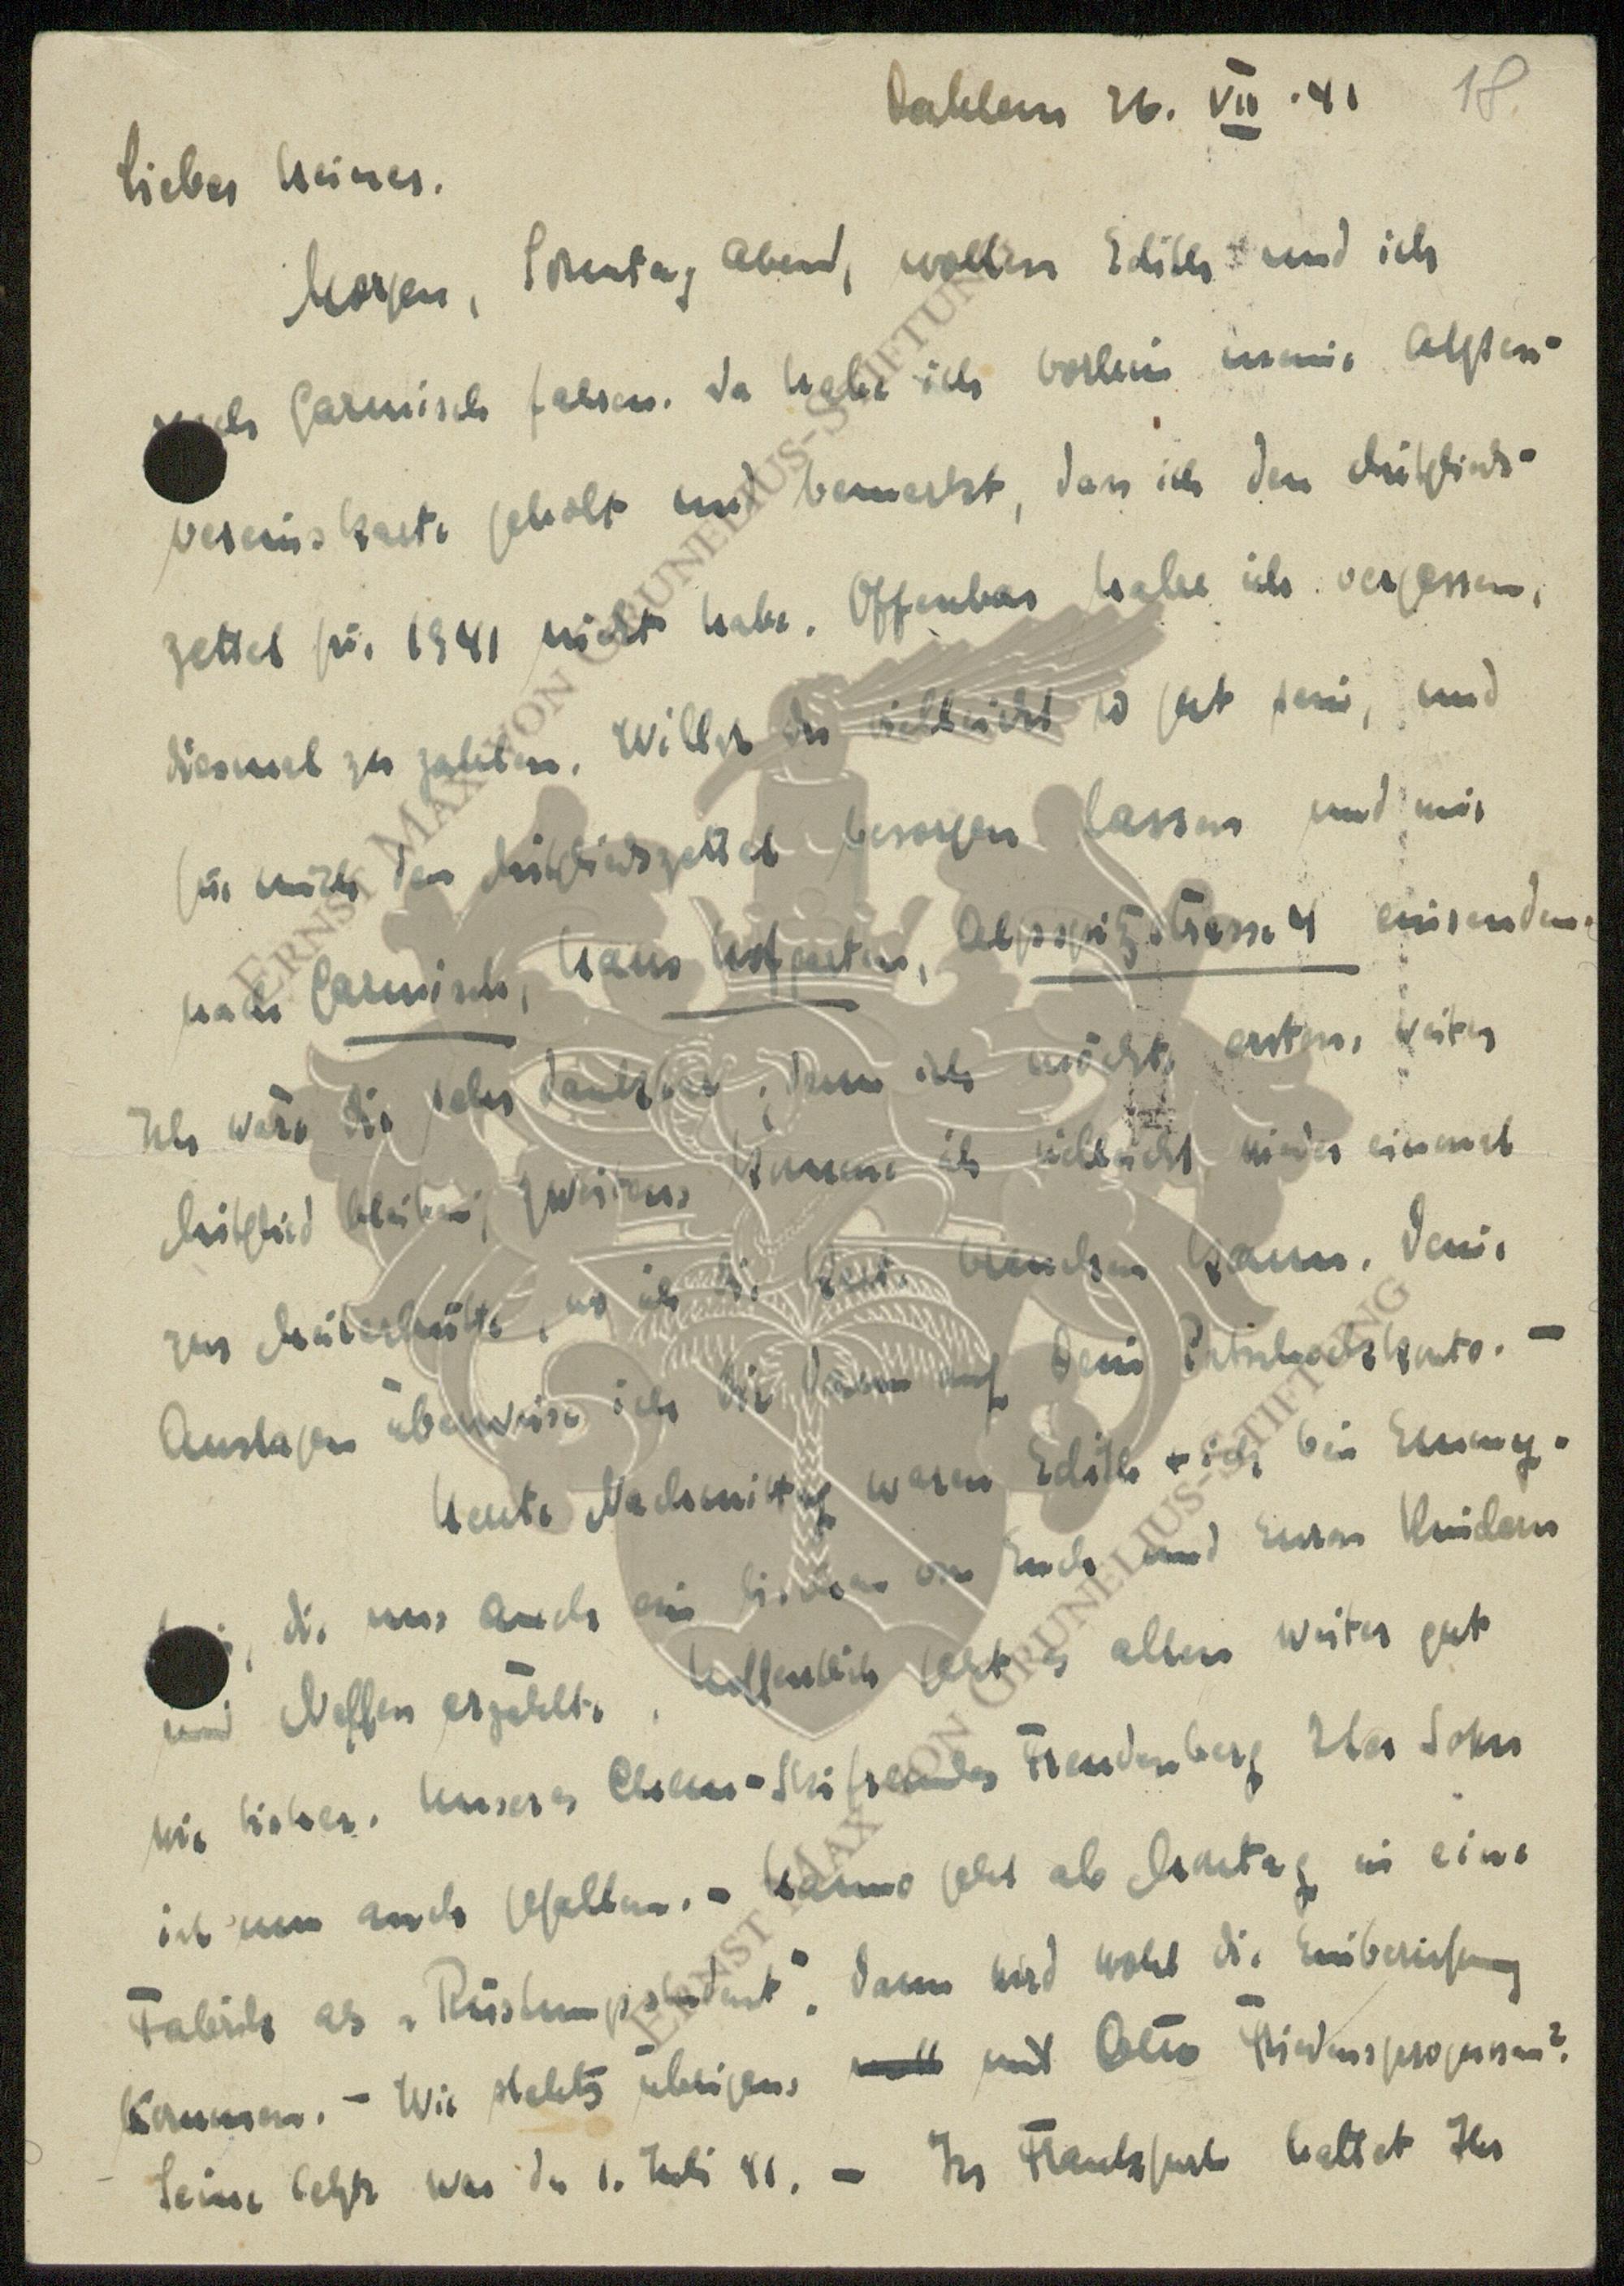 Dahlem 26. VII. 41
18.
Lieber Heiner.
Morgen, Sonntag Abend, wollen Edith und ich
nach Garmisch fahren. Da habe ich vorhin meine Alpen-
vereinskarte geholt und bemerkt, dass ich den Mitglieds-
zettel für 1941 nicht habe. Offenbar habe ich vergessen,
diesmal zu zahlen. Willst du vielleicht so gut sein, und
für mich den Mitgliedszettel besorgen lassen und mir
nach Garmisch, Haus Hofgarten, Alpspitzstrasse 4 einsenden.
Ich wäre dir sehr dankbar, denn ich möchte erstens weiter
Mitglied bleiben, zweitens komme ich vielleicht wieder einmal
zur hütte, wo ich die brauchen kann. Deine
Auslagen überweise ich dir dann auf Dein Postscheckkonto. –
Heute Nachmittag waren Edith + ich bei Emmy-
, die uns auch ein bisschen von Euch und Euren Kindern
und Neffen erzählte. Hoffentlich geht es allen weiter gut
wie bisher. Unseres Freudenberg Sohn
ist nun auch gefallen. – Hanno geht ab Montag in eine
Fabrik als „Rüstungsstudent“. Dann wird wohl die Einberufung
kommen. – Wie steht's übrigens mit Ottos Friedensprognosen?
Seine letzte war der 1. Juli 41. – In Frankfurt hattet Ihr
ERNST MAX VON GRUNELIUS-STIFTUNG
ERNST MAX VON GRUNELIUS-STIFTUNG